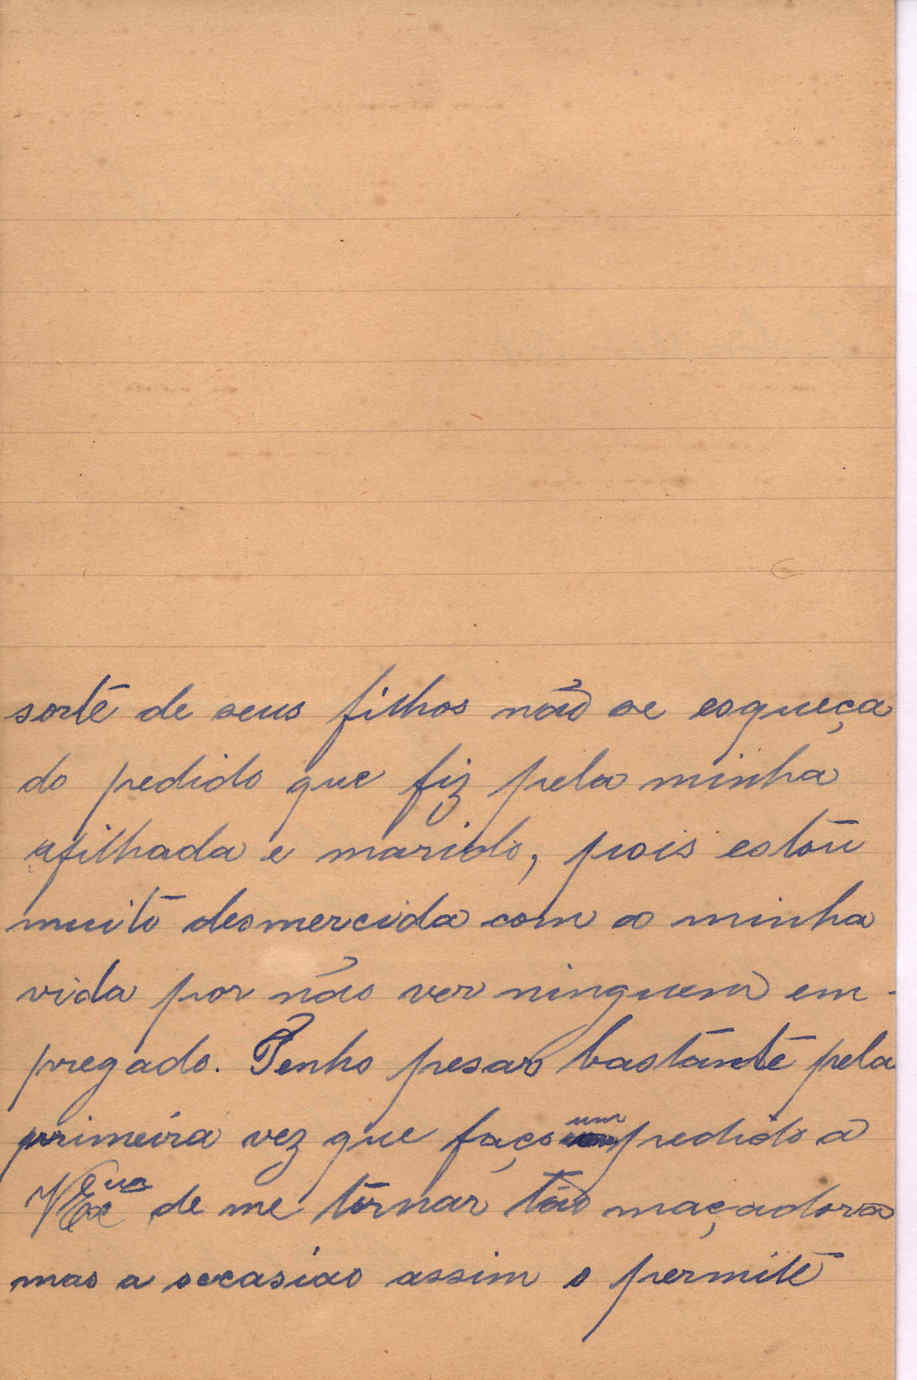 sorte de seus filhos não se esqueça
do pedido que fiz pela minha
afilhada e marido, pois estou
muito desmercida com a minha
vida por não ver ninguem em-
pregado. Tenho pesar bastante pela
primeira vez que faço um pedido a
VExª de me tornar tão maçadora
mas a occasiao assim o permite